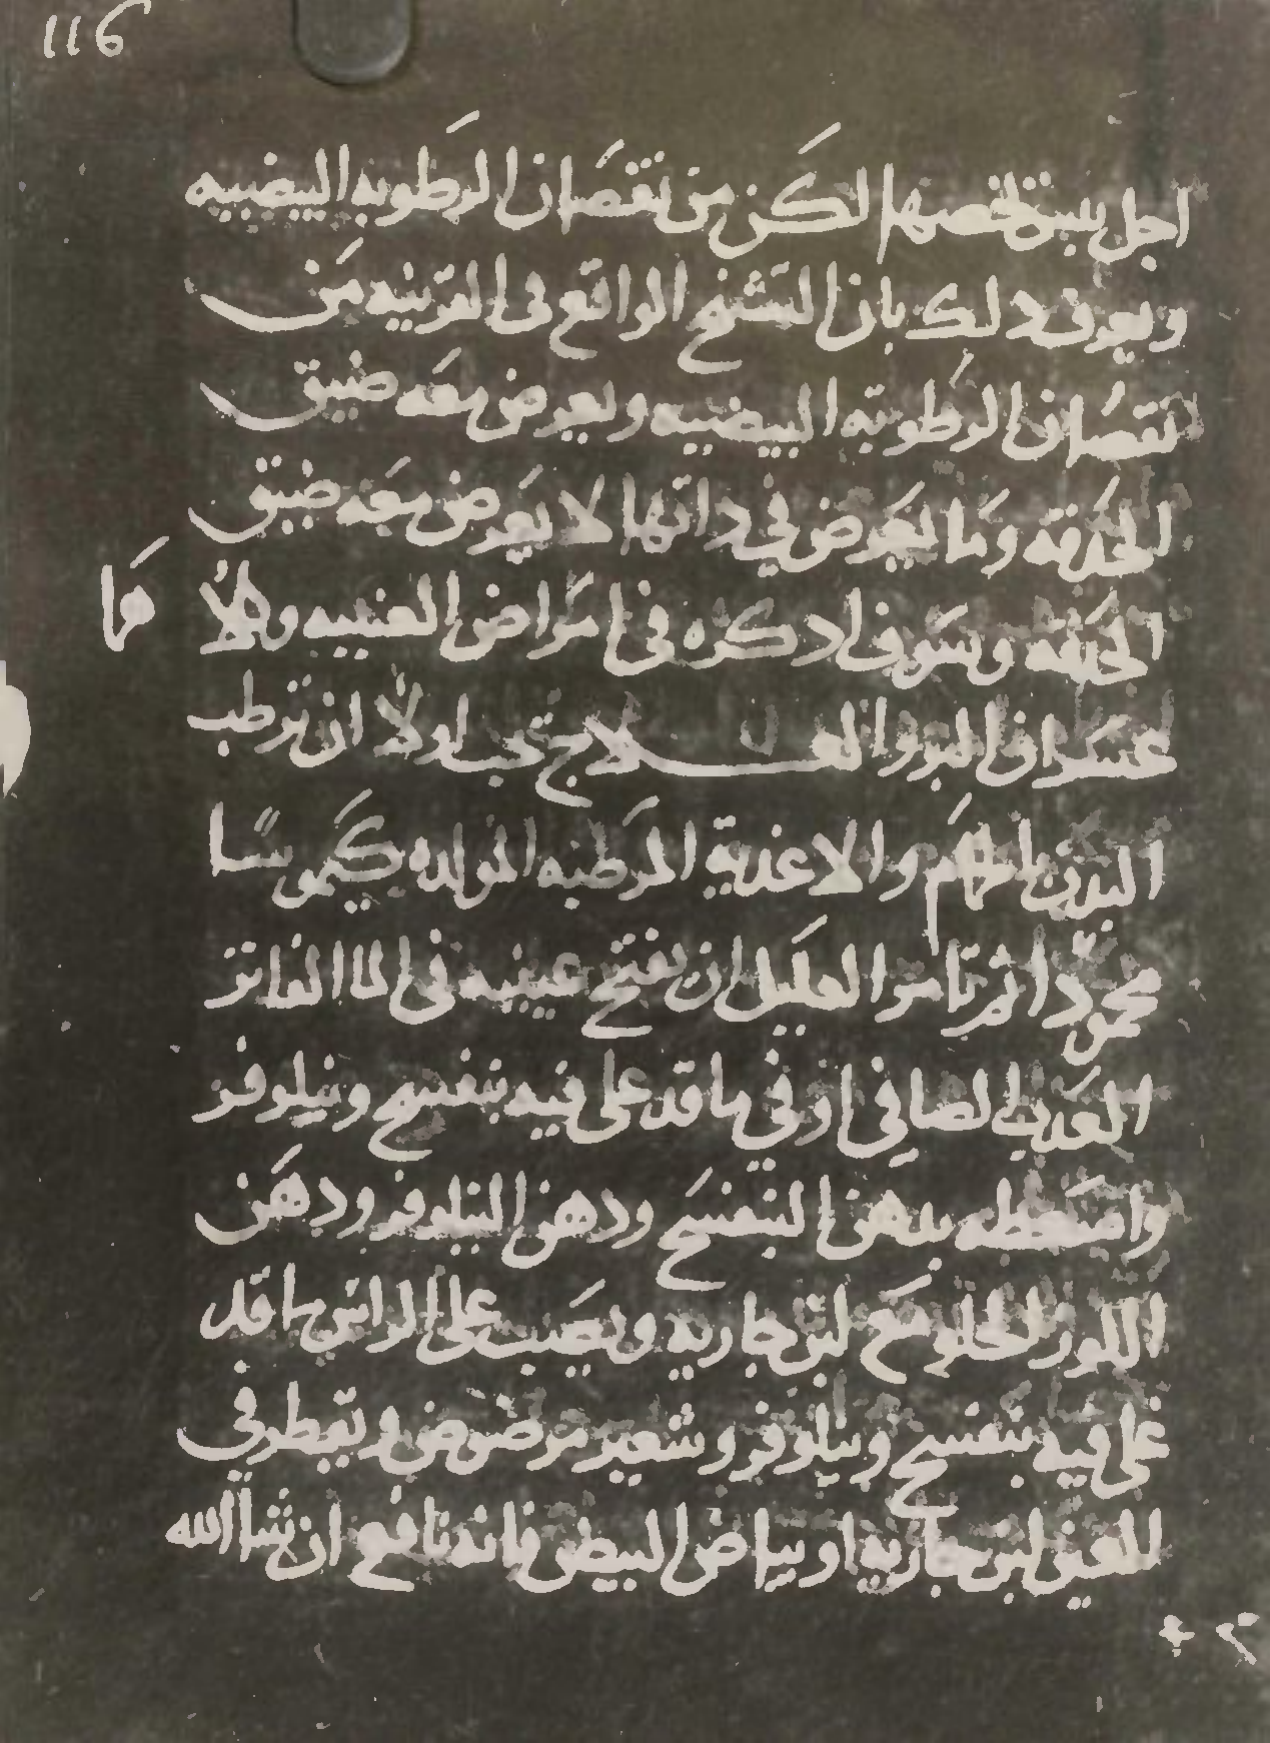 116
اجل يبس يخصها لكن من نقصان الرطوبه البيضيه
ويعرف دلك بان التشنج الواقع فى القرنيه من
نقصان الرطوبه البيضيه ويعرض معه ضيق
الحدقه وما يعرض في داتها لا يعرض معه ضيق
الحدقه وسوف ادكره فى امراض العنبيه وهاذا
عسر البرو العلاج يجب اولا ان ترطب
البدن بالحمام والاغدية المرطبه المولده كيموسا
محمودا ثم تامر العليل ان يفتح عينيه فى الما الفاتر
العدب الصافي او في ما قد على فيه بنفسج ونيلوفر
واسعطه بدهن البنفسج ودهن النيلوفر ودهن
اللوز الحلو مع لبن جاريه ويصب على الراس ما قد
غلى فيه بنفسج ونيلوفر وشعير مرضوض ويقطر في
العين لبن جارية او بياض البيض فانه نافع ان شا الله